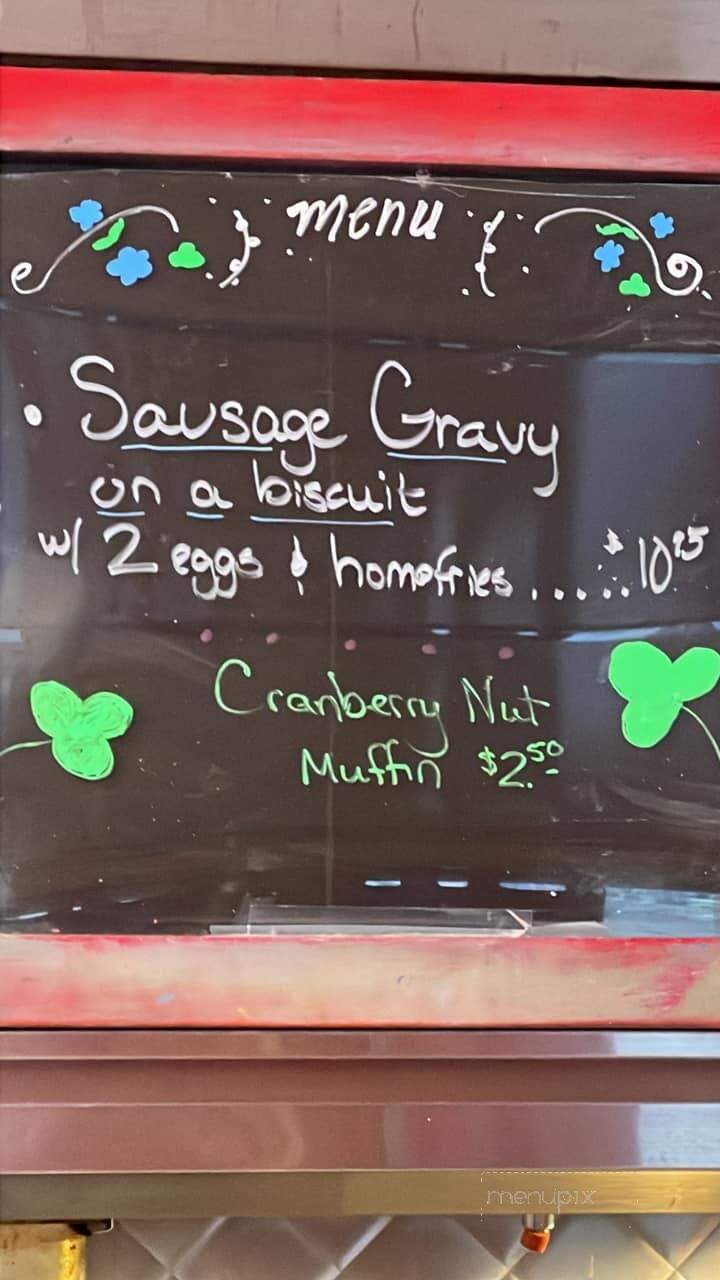 menu
• Sausage Gravy
on a biscuit
w/ 2 eggs & homefries ...... $10.95
Cranberry Nut
Muffin $2.50
menupix